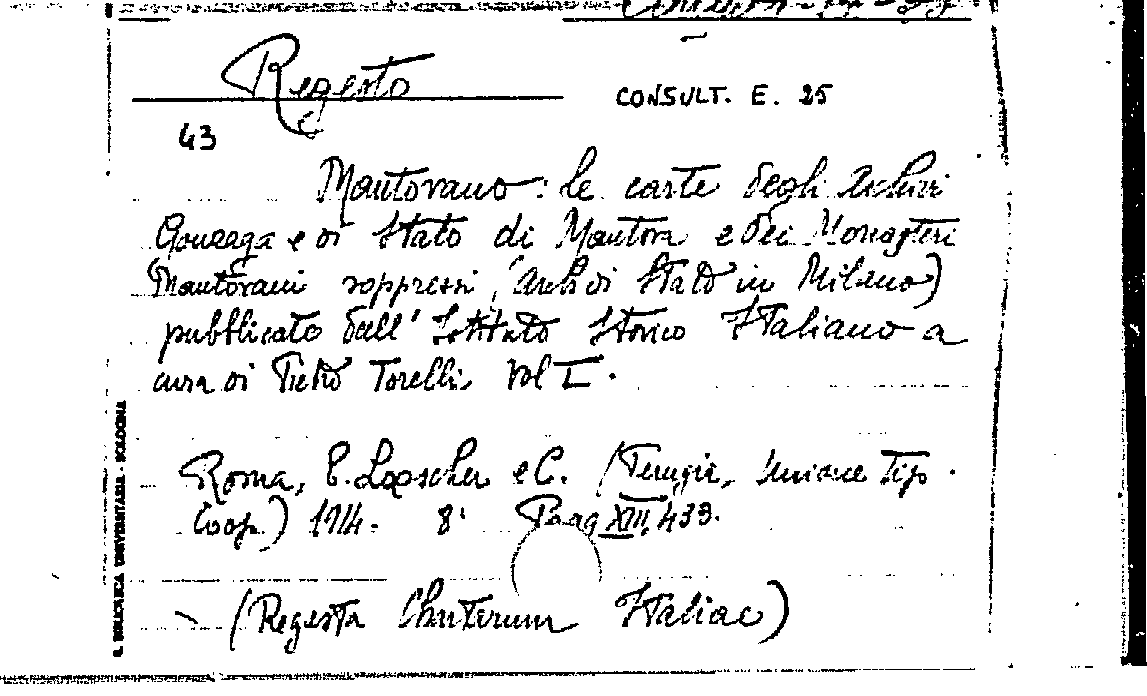 Regesto
CONSULT. E. 25
43
Mantovano: le carte degli Archivi
Gonzaga e di Stato di Mantova e dei Monasteri
Mantovani soppressi (Arch. di Stato in Milano)
pubblicato dall' Istituto Storico Italiano a
cura di Pietro Torelli. Vol I.
Roma, E. Loescher e C. (Perugia, Unione Tip.
Coop.) 1914. 8° Pagg XIII, 433.
(Regesta Chartarum Italiae)
BIBLIOTECA UNIVERSITARIA - BOLOGNA